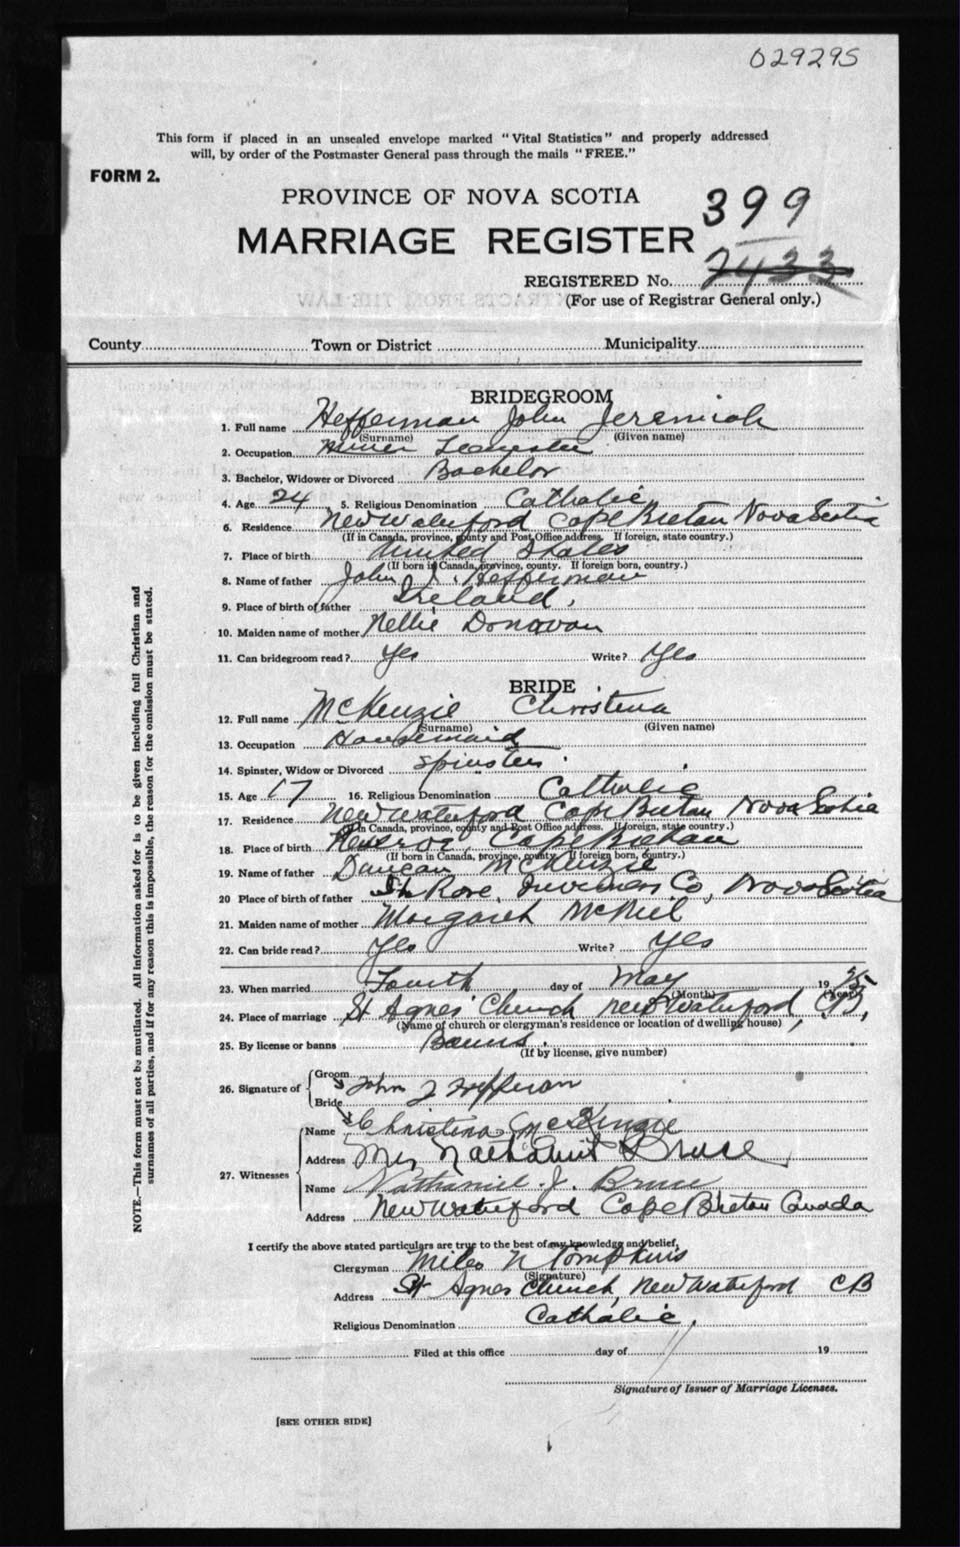 029295
This form if placed in an unsealed envelope marked "Vital Statistics" and properly addressed
will, by order of the Postmaster General pass through the mails "FREE."
FORM 2.
PROVINCE OF NOVA SCOTIA
399
MARRIAGE REGISTER
REGISTERED No. 2433
(For use of Registrar General only.)
County Town or District Municipality
BRIDEGROOM
1. Full name Heffernan John Jeremiah
(Surname) (Given name)
2. Occupation Miner Teamster
3. Bachelor, Widower or Divorced Bachelor
4. Age 24 5. Religious Denomination Catholic
6. Residence New Waterford Cape Breton Nova Scotia
(If in Canada, province, county and Post Office address. If foreign, state country.)
7. Place of birth United States
(If born in Canada, province, county. If foreign born, country.)
8. Name of father John J. Heffernan
9. Place of birth of father Ireland,
10. Maiden name of mother Nellie Donovan
11. Can bridegroom read? Yes Write? Yes
BRIDE
12. Full name McKenzie Christena
(Surname) (Given name)
13. Occupation Housemaid
14. Spinster, Widow or Divorced Spinster
15. Age 17 16. Religious Denomination Catholic
17. Residence New Waterford Cape Breton Nova Scotia
(In Canada, province, county and Post Office address. If foreign, state country.)
18. Place of birth Cape Breton
(If born in Canada, province, county. If foreign born, country.)
19. Name of father Duncan McKenzie
20 Place of birth of father Rose, Inverness Co, Nova Scotia
21. Maiden name of mother Margaret McNeil
22. Can bride read? Yes Write? Yes
23. When married Fourth day of May 1925
(Month) (Year)
24. Place of marriage St Agnes Church New Waterford, C.B.,
(Name of church or clergyman's residence or location of dwelling house)
25. By license or banns Banns.
(If by license, give number)
26. Signature of Groom John J Heffernan
Bride
Name Christena McKenzie
27. Witnesses Address Mrs Nathaniel Bruce
Name Nathaniel J. Bruce
Address New Waterford Cape Breton Canada
I certify the above stated particulars are true to the best of my knowledge and belief,
Clergyman Miles N Tompkins
(Signature)
Address St Agnes Church, New Waterford CB
Religious Denomination Catholic.
Filed at this office day of 19
Signature of Issuer of Marriage Licenses.
[SEE OTHER SIDE]
NOTE.—This form must not be mutilated. All information asked for is to be given including full Christian and
surnames of all parties, and if for any reason this is impossible, the reason for the omission must be stated.